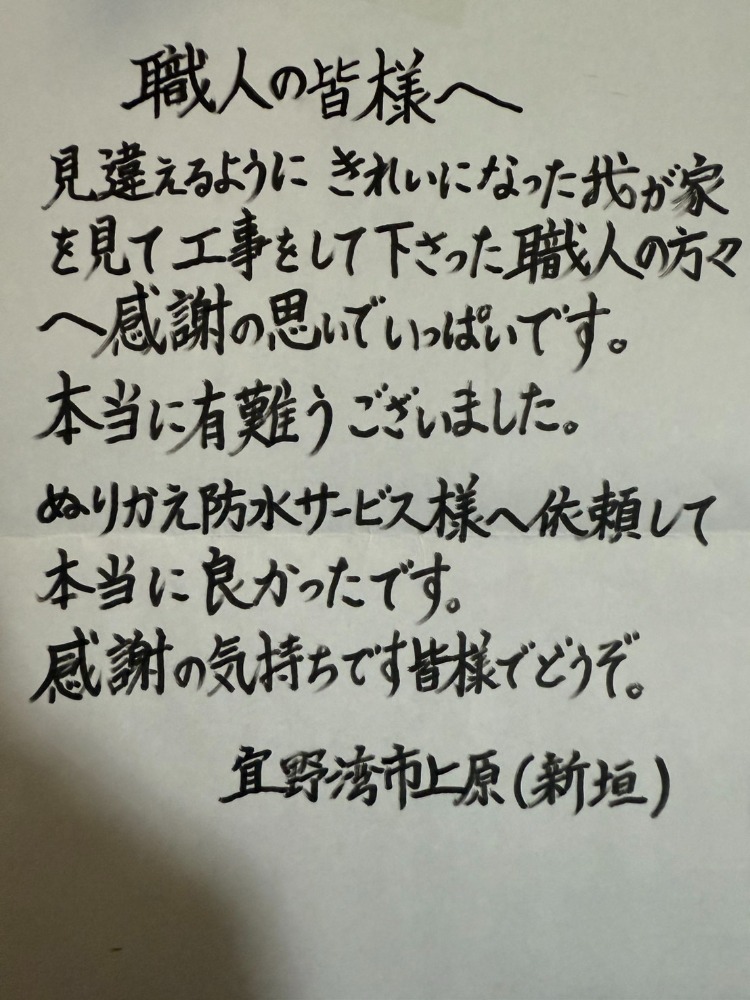 職人の皆様へ
見違えるように きれいになった我が家
を見て工事をして下さった職人の方々
へ感謝の思いでいっぱいです。
本当に有難うございました。
ぬりかえ防水サービス様へ依頼して
本当に良かったです。
感謝の気持ちです皆様でどうぞ。
宜野湾市上原(新垣)